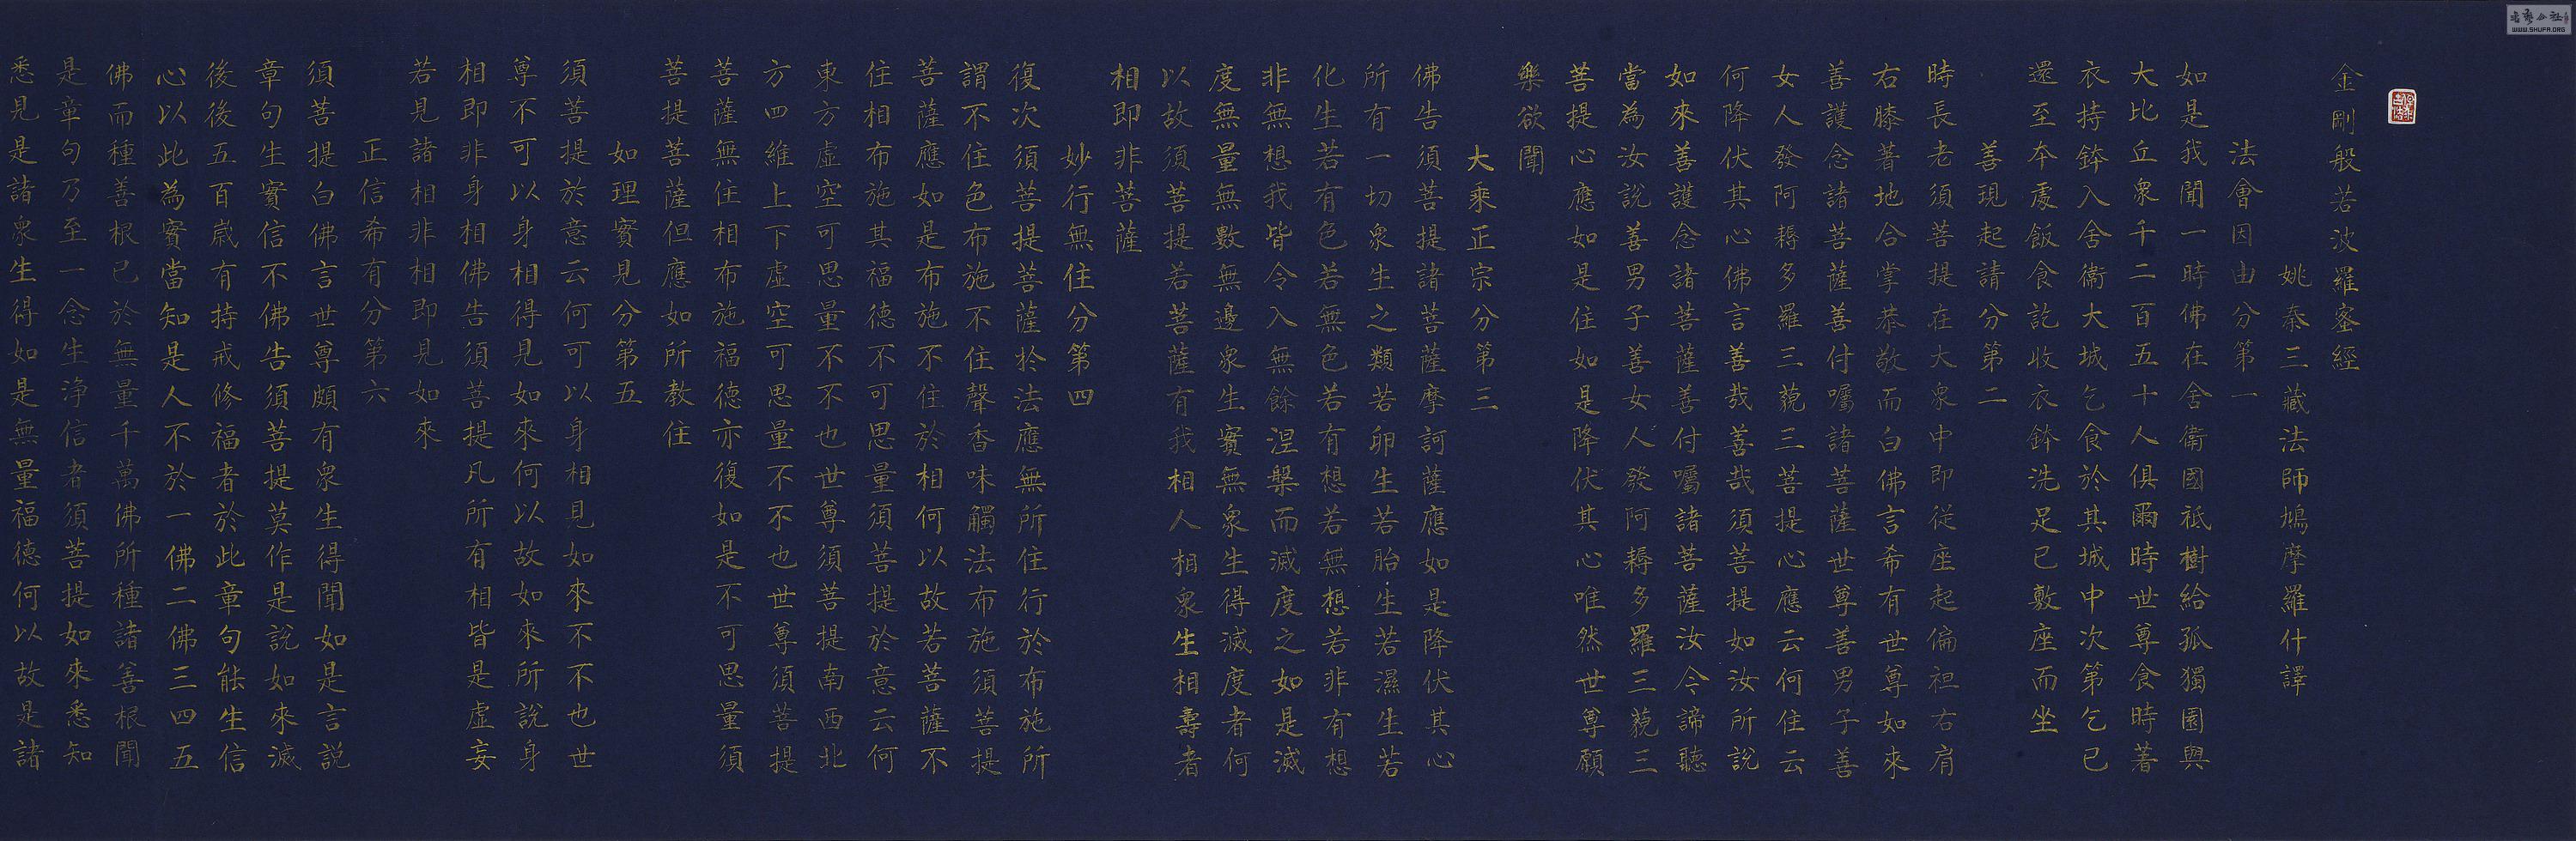 金剛般若波羅蜜經
姚秦三藏法師鳩摩羅什譯
法會因由分第一
如是我聞一時佛在舍衛國祇樹給孤獨園與
大比丘衆千二百五十人俱爾時世尊食時著
衣持鉢入舍衛大城乞食於其城中次第乞已
還至本處飯食訖收衣鉢洗足已敷座而坐
善現起請分第二
時長老須菩提在大衆中即從座起偏袒右肩
右膝著地合掌恭敬而白佛言希有世尊如來
善護念諸菩薩善付囑諸菩薩世尊善男子善
女人發阿耨多羅三藐三菩提心應云何住云
何降伏其心佛言善哉善哉須菩提如汝所說
如來善護念諸菩薩善付囑諸菩薩汝今諦聽
當為汝說善男子善女人發阿耨多羅三藐三
菩提心應如是住如是降伏其心唯然世尊願
樂欲聞
大乘正宗分第三
佛告須菩提諸菩薩摩訶薩應如是降伏其心
所有一切衆生之類若卵生若胎生若濕生若
化生若有色若無色若有想若無想若非有想
非無想我皆令入無餘涅槃而滅度之如是滅
度無量無數無邊衆生實無衆生得滅度者何
以故須菩提若菩薩有我相人相衆生相壽者
相即非菩薩
妙行無住分第四
復次須菩提菩薩於法應無所住行於布施所
謂不住色布施不住聲香味觸法布施須菩提
菩薩應如是布施不住於相何以故若菩薩不
住相布施其福德不可思量須菩提於意云何
東方虛空可思量不不也世尊須菩提南西北
方四維上下虛空可思量不不也世尊須菩提
菩薩無住相布施福德亦復如是不可思量須
菩提菩薩但應如所教住
如理實見分第五
須菩提於意云何可以身相見如來不不也世
尊不可以身相得見如來何以故如來所說身
相即非身相佛告須菩提凡所有相皆是虛妄
若見諸相非相即見如來
正信希有分第六
須菩提白佛言世尊頗有衆生得聞如是言說
章句生實信不佛告須菩提莫作是說如來滅
後後五百歲有持戒修福者於此章句能生信
心以此為實當知是人不於一佛二佛三四五
佛而種善根已於無量千萬佛所種諸善根聞
是章句乃至一念生淨信者須菩提如來悉知
悉見是諸衆生得如是無量福德何以故是諸
WWW.SHUFA.ORG